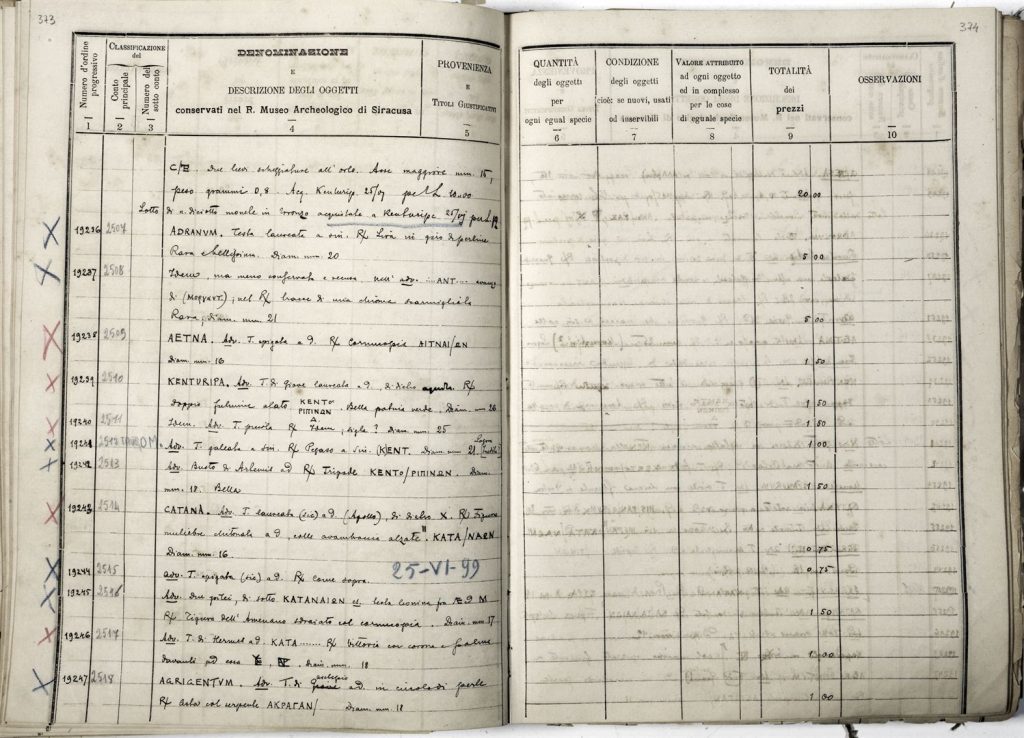 373
Numero d'ordine progressivo
1
CLASSIFICAZIONE del
Conto principale
2
Numero del sotto conto
3
DENOMINAZIONE
E
DESCRIZIONE DEGLI OGGETTI
conservati nel R. Museo Archeologico di Siracusa
4
PROVENIENZA
E
TITOLI GIUSTIFICATIVI
5
C/E. Due lievi scheggiature all'orlo. Asse maggiore mm. 15,
peso grammi 0,8 Acq. Kenturipe 25/VI per L 20.00
Lotto di n. diciotto monete in bronzo acquistate a Kenturipe 25/VI per L.
19236 2507 ADRANVM. Testa laureata a sin. R/ Lira in giro di perline
Rara e bellissima. Diam. mm. 20
19237 2508 Idem, ma meno conservata e nell' adv. ...ANT...
di (ΜΟΡΓΑΝΤ.); nel R/ tracce di una chioma scarmigliata
Rara, Diam. mm. 21
19238 2509 AETNA. Adv. T. a d. R/ Cornucopia AITNAI/ΩN
Diam. mm. 16
19239 2510 KENTURIPA. Adv. T. di Giove laureata a d., di dietro aquila. R/
doppio fulmine alato ΚΕΝΤΟ ΡΙΠΙΝΩΝ. Bella patina verde. Diam. mm 26
19240 2511 Idem. Adv. T. R/ Idem, sigla? Diam. mm. 25
19241 2512 D.M. Adv. T. galeata a sin. R/ Pegaso a sin. (KENT. Diam. mm 21
19242 2513 Adv. Busto di Artemis a d. R/ Tripode ΚΕΝΤΟ/ΡΙΠΙΝΩΝ. Diam.
mm. 18. Bella
19243 2514 CATANA. Adv. T. laureata (sic) a d. (Apollo), di dietro X. R/ Figura
muliebre a d., colle avambraccia alzate. ΚΑΤΑ/ΝΑΩΝ
Diam. mm. 16
25-VI-99
19244 2515 Adv. T. (sic) a d. R/ Come sopra.
19245 2516 Adv. Due pilei, di sotto ΚΑΤΑΝΑΙΩΝ testa leonina fra
R/ Figura dell'Amenano sdraiato col cornucopia. Diam. mm. 17
19246 2517 Adv. T. di Hermes a d. KATA....... R/ Vittoria con corona e palma
davanti ad essa Diam. mm. 18
19247 2518 AGRIGENTVM. Adv. T. di a d. in circolo di perle
R/ Asta col serpente ΑΚΡΑΓΑΝ/ Diam. mm. 18
374
QUANTITÀ
degli oggetti
per
ogni egual specie
6
CONDIZIONE
degli oggetti
cioè: se nuovi, usati
od inservibili
7
VALORE ATTRIBUITO
ad ogni oggetto
ed in complesso
per le cose
di eguale specie
8
TOTALITÀ
dei
prezzi
9
OSSERVAZIONI
10
20 00
5 00
5 00
1 50
1 50
1 50
1 00
1 50
0 75
0 75
1 50
1 00
1 00